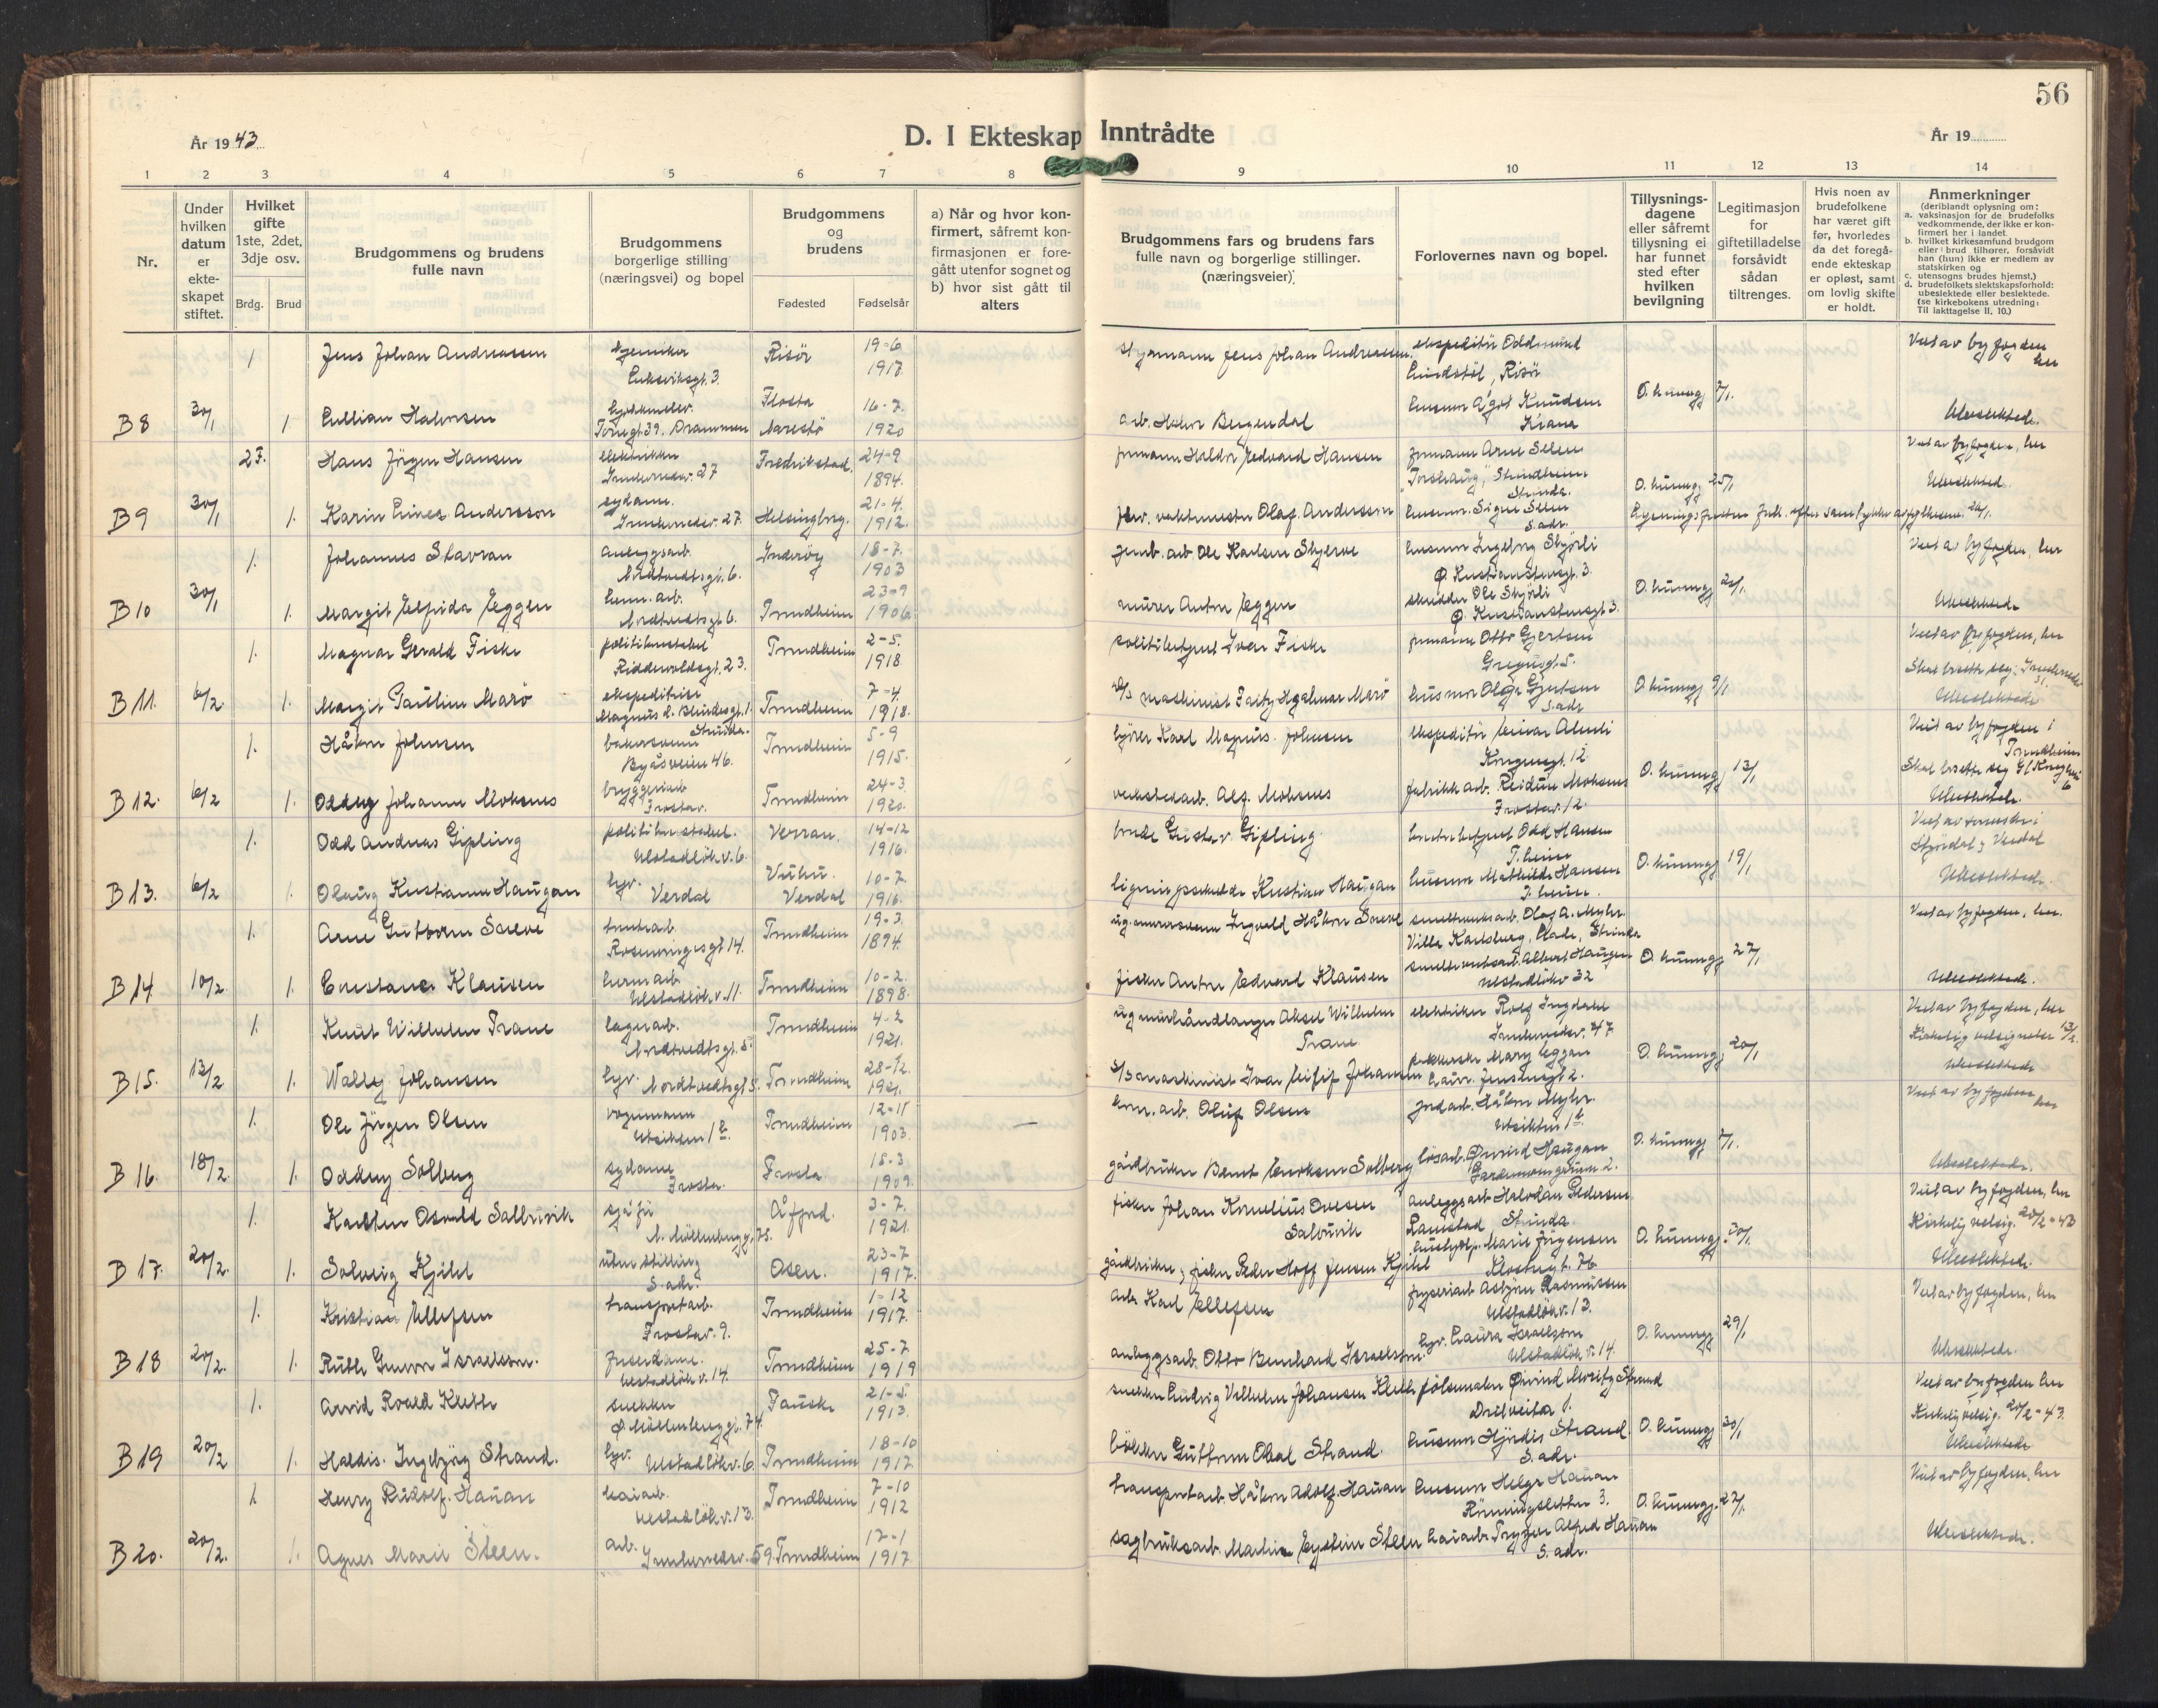 56
År 1943
D. I Ekteskap Inntrådte
År 19
1 2 3 4 5 6 7 8 9 10 11 12 13 14
Nr.
Under hvilken datum er ekte- skapet stiftet.
Hvilket gifte 1ste, 2det, 3dje osv.
Brdg. Brud
Brudgommens og brudens fulle navn
Brudgommens borgerlige stilling (næringsvei) og bopel
Brudgommens og brudens
Fødested Fødselsår
a) Når og hvor kon- firmert, såfremt kon- firmasjonen er fore- gått utenfor sognet og b) hvor sist gått til alters
Brudgommens fars og brudens fars fulle navn og borgerlige stillinger. (næringsveier).
Forlovernes navn og bopel.
Tillysnings- dagene eller såfremt tillysning ei har funnet sted efter hvilken bevilgning
Legitimasjon for giftetilladelse forsåvidt sådan tiltrenges.
Hvis noen av brudefolkene har været gift før, hvorledes da det foregå- ende ekteskap er opløst, samt om lovlig skifte er holdt.
Anmerkninger
(deriblandt oplysning om:
a. vaksinasjon for de brudefolks vedkommende, der ikke er kon- firmert her i landet.
b. hvilket kirkesamfund brudgom eller brud tilhører, forsåvidt han (hun) ikke er medlem av statskirken og
c. utensogns brudes hjemst.)
d. brudefolkets slektskapsforhold: ubeslektede eller beslektede.
(se kirkebokens utredning: Til iakttagelse II, 10.)
1 Jens Johan Andreassen Risör 19-6 1917 Styrmann Jens Johan Andreassen. ekspeditör Oddmund Risör Viet av byfogden her
B 8 30/1 1. Lillian Halvorsen Torvgt. 39. Drammen Flosta Narestö 16-7. 1920 arb. Halvor Bergendal husmor Ågot Knudsen O. kunng 7/1. Ubeslektede.
2F. Hans Jörgen Hansen elektriker Innherredsv. 27 Fredrikstad. 24-9 1894. formann Haldor Edvard Hansen formann Arne Selen Strindheim Strinda. Viet av byfogden, her
B 9 30/1 1. Karin Andersson sydame. Innherredsv. 27. Helsingborg. 21-4. 1912. vaktmester Olaf Andersson husmor Signe Selen S. adr. O. kunng 25/1 Ubeslektede
1. Johannes Stavran anleggsarb. Nordtvedtsgt. 6. Inderöy 18-7. 1903 jernb. arb Ole Karlsen Skjerve husmor Ingeborg Skjörli Ö. Kristianstensgt. 3. Viet av byfogden, her
B 10 30/1 1. Margit Elfrida Eggen Nordtvedtsgt. 6. Trondheim 23-9 1906. murer Anton Eggen skredder Ole Skjörli Ö. Kristianstensgt. 3. O. kunngj Ubeslektede
1. Magnar Gerald Fiske politikonstabel Riddervoldsgt. 23. Trondheim 2-5. 1918 politibetjent Ivar Fiske formann Otto Gjertsen Griegsgt. 5. Viet av byfogden, her
B 11. 6/2. 1. Margit Pauline Marö ekspeditrise Magnus d. Blindesgt. 1. Strinda. Trondheim 7-4 1918. maskinist Hjalmar Marö husmor Olga Gjertsen S. adr O. kunngj 9/1 Skal bosette seg: Innherredsv. 31. Ubeslektede
1. Håkon Johnsen bakersvenn Byåsveien 46. Trondheim 5-9 1915. kjörer Karl Magnus Johnsen ekspeditör Einar Kongensgt. 12 Viet av byfogden i Trondheim
B 12. 6/2 1. Oddny Johanne Moksnes bryggeriarb Frostav. Trondheim 24-3. 1920. verkstedarb. Alf. Moksnes fabrikkarb. Reidun Moksnes Frostav. 12. O. kunngj 13/1 Skal bosette seg Ubeslektede.
1. Odd Andreas Gipling politikonstabel. Ulstadlökv. 6. Verran. 14-12 1916. bonde Gustav Gipling Odd Hansen T. heim Stjördal og Verdal
B 13. 6/2 1. Olaug Kristianne Haugan hjv. Verdal Vuku. Verdal 10-7. 1916. ligningssekretær Kristian Haugan husmor Mathilde Hansen T. heim. O. kunngj 19/1 Ubeslektede.
1. Arne Guttorm Rosenborgsgt 14. Trondheim 19-3. 1894. murersvenn Ingvald Håkon smelteverksarb. Olaf A. Myhr. Villa Karlsberg, Lade, Strinda Viet av byfogden, her.
B 14 10/2. 1. Constance Klausen herm. arb Ulstadlökv. 11. Trondheim 10-2. 1898. fisker Anton Edvard Klausen smelteverksarb. Albert Haugen Ulstadlökv 32 O. kunngj 27/1 Ubeslektede.
1. Knut Wilhelm Trane lagerarb. Nordtvedtsgt. 5. Trondheim 4-2 1921. murhåndlanger Aksel Wilhelm Trane elektriker Rolf Ingdahl Innherredsv. 47 Viet av byfogden, her Kirkelig velsignelse 13/2.
B 15. 13/2 1. Wally Johansen hjv. Nordtvedtsgt 5. Trondheim 28-12. 1921. maskinist Ivar Johansen Mary Eggan O. kunngj 20/1 Ubeslektede
1. Ole Jörgen Olsen vognmann Utsikten 1 b. Trondheim 12-11 1903. herm. arb. Oluf Olsen jordarb. Håkon Myhr. Utsikten 1 b. Viet av byfogden her
B 16 18/2. 1. Oddny Solberg sydame Frosta. Frosta 18-3 1909. gårdbruker Bernt Solberg lösarb. Öivind Haugan O. kunngj 7/1. Ubeslektede.
1. Karsten Osvald Salbuvik sjåför N. Möllenberggt. 75. Åfjord. 3-7. 1921. fisker Johan Kornelius Ovesen Salbuvik anleggsarb Halvdan Pedersen Ranestad Strinda. Viet av byfogden, her Kirkelig velsig. 20/2-43
B 17. 20/2. 1. Solveig Kjihl uten stilling S. adr. Osen. 23-7 1917. gårdbruker og fisker Peder Hoff Jensen Kjihl hushjelp. Marie Jörgensen Klostergt. 76 O. kunngj. 20/1. Ubeslektede.
1. Kristian Ellefsen transportarb. Frostav. 9. Trondheim 1-12 1917. arb. Karl Ellefsen fryseriarb Asbjörn Rasmussen Ulstadlökv. 13. Viet av byfogden, her
B 18 20/2. 1. Ruth Gunvor Israelsson. friserdame. Ulstadlökv. 14. Trondheim 25-7 1919 anleggsarb. Otto Bernhard Israelsson. hjv. Laura Israelsson Ulstadlökv. 14. O. kunngj 29/1 Ubeslektede.
1. Arvid Roald Kleth snekker Ö. Möllenberggt. 74. Fauske 21-5. 1913. snekker Ludvig Vilhelm Johansen Kleth pölsemaker Öivind Moritz Strand Viet av byfogden her Kirkelig velsig. 20/2-43.
B 19 20/2 1. Haldis. Ingebjörg Strand. hjv. Ulstadlökv. 6. Trondheim 18-10 1917 bökker Guttorm Obal Strand. husmor Hjördis Strand. S. adr. O. kunngj 20/1 Ubeslektede
1 Henry Rudolf. Hauan kaiarb. Ulstadlökv. 13. Trondheim 7-10 1912 transportarb. Håkon Adolf. Hauan husmor Helga Hauan Rönningsletta 3. Viet av byfogden, her
B 20. 20/2. 1. Agnes Marie Steen. arb. Innherredsv. 59. Trondheim 17-1 1917 sagbruksarb. Martin Eystein Steen kaiarb. Trygve Alfred Hauan S. adr. O. kunngj. 27/1. Ubeslektede.